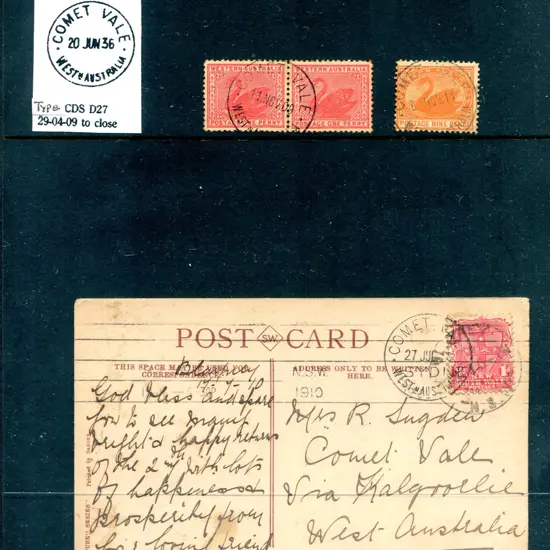 COMET VALE
20 JUN 36
WESTN AUSTRALIA
Type CDS D27
29-04-09 to close
WESTERN AUSTRALIA
POSTAGE ONE PENNY
WESTERN AUSTRALIA
POSTAGE ONE PENNY
COMET VALE
POSTAGE
POST CARD
SW
COMET
27 JU
WEST AUS
THIS SPACE MAY BE
CORRESPONDENCE
ADDRESS ONLY TO BE WRITTEN
HERE.
N.S.W.
1910
God bless and spare
you to see many
bright & happy returns
of the 2nd with lots
of happiness &
prosperity from
your loving friend
Mrs R. Sugden
Comet Vale
Via Kalgoorlie
West Australia